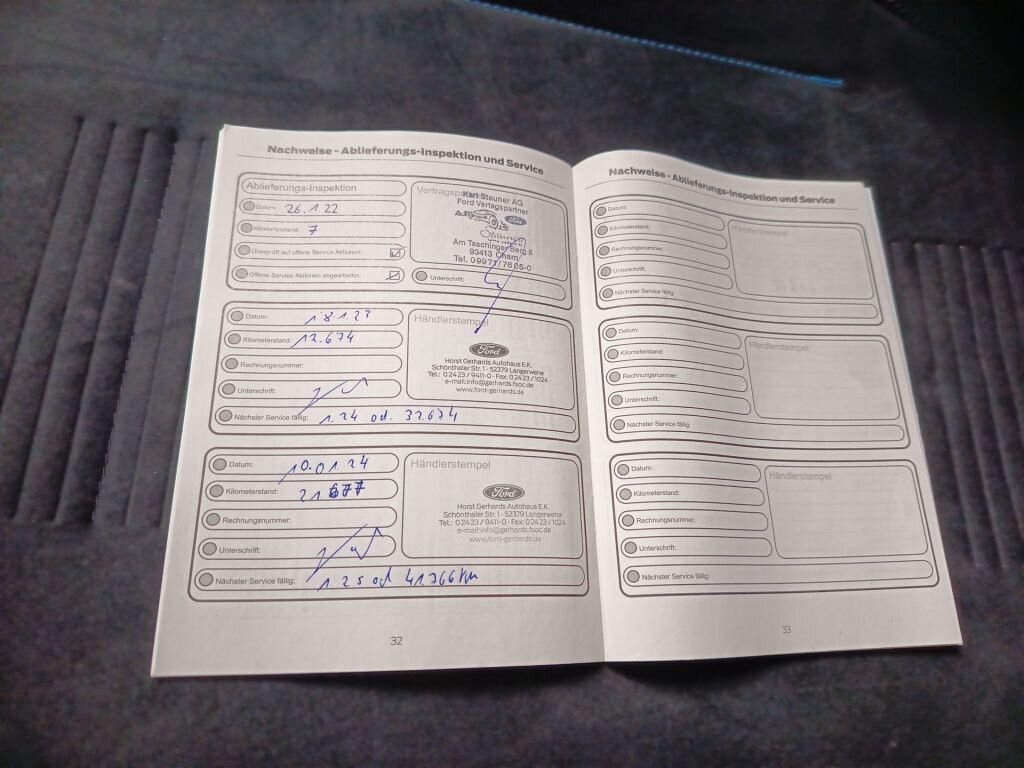 Nachweise - Ablieferungs-Inspektion und Service
Ablieferungs-Inspektion
Datum: 26.1.22
Kilometerstand: 7
Überprüft auf offene Service Aktionen:
Offene Service Aktionen abgearbeitet:
Vertragspartner
Karl Stauner AG
Ford Vertagspartner
Ford
Stauner
Am Taschinger Berg 6
93413 Cham
Tel. 09971/7605-0
Unterschrift:
Datum: 18.1.23
Kilometerstand: 12.674
Rechnungsnummer:
Unterschrift:
Nächster Service fällig: 1.24 od. 32.674
Händlerstempel
Ford
Horst Gerhards Autohaus E.K.
Schönthaler Str. 1 · 52379 Langerwehe
Tel.: 0 24 23 / 9411-0 · Fax: 0 24 23 / 1024
e-mail:info@gerhards.fsoc.de
www.ford-gerhards.de
Datum: 10.01.24
Kilometerstand: 21
Rechnungsnummer:
Unterschrift:
Nächster Service fällig: 1.25 od 41.766 km
Händlerstempel
Ford
Horst Gerhards Autohaus E.K.
Schönthaler Str. 1 · 52379 Langerwehe
Tel.: 0 24 23 / 9411-0 · Fax: 0 24 23 / 1024
e-mail:info@gerhards.fsoc.de
www.ford-gerhards.de
32
Nachweise - Ablieferungs-Inspektion und Service
Datum:
Kilometerstand:
Rechnungsnummer:
Unterschrift:
Nächster Service fällig:
Händlerstempel
Datum:
Kilometerstand:
Rechnungsnummer:
Unterschrift:
Nächster Service fällig:
Händlerstempel
Datum:
Kilometerstand:
Rechnungsnummer:
Unterschrift:
Nächster Service fällig:
Händlerstempel
33